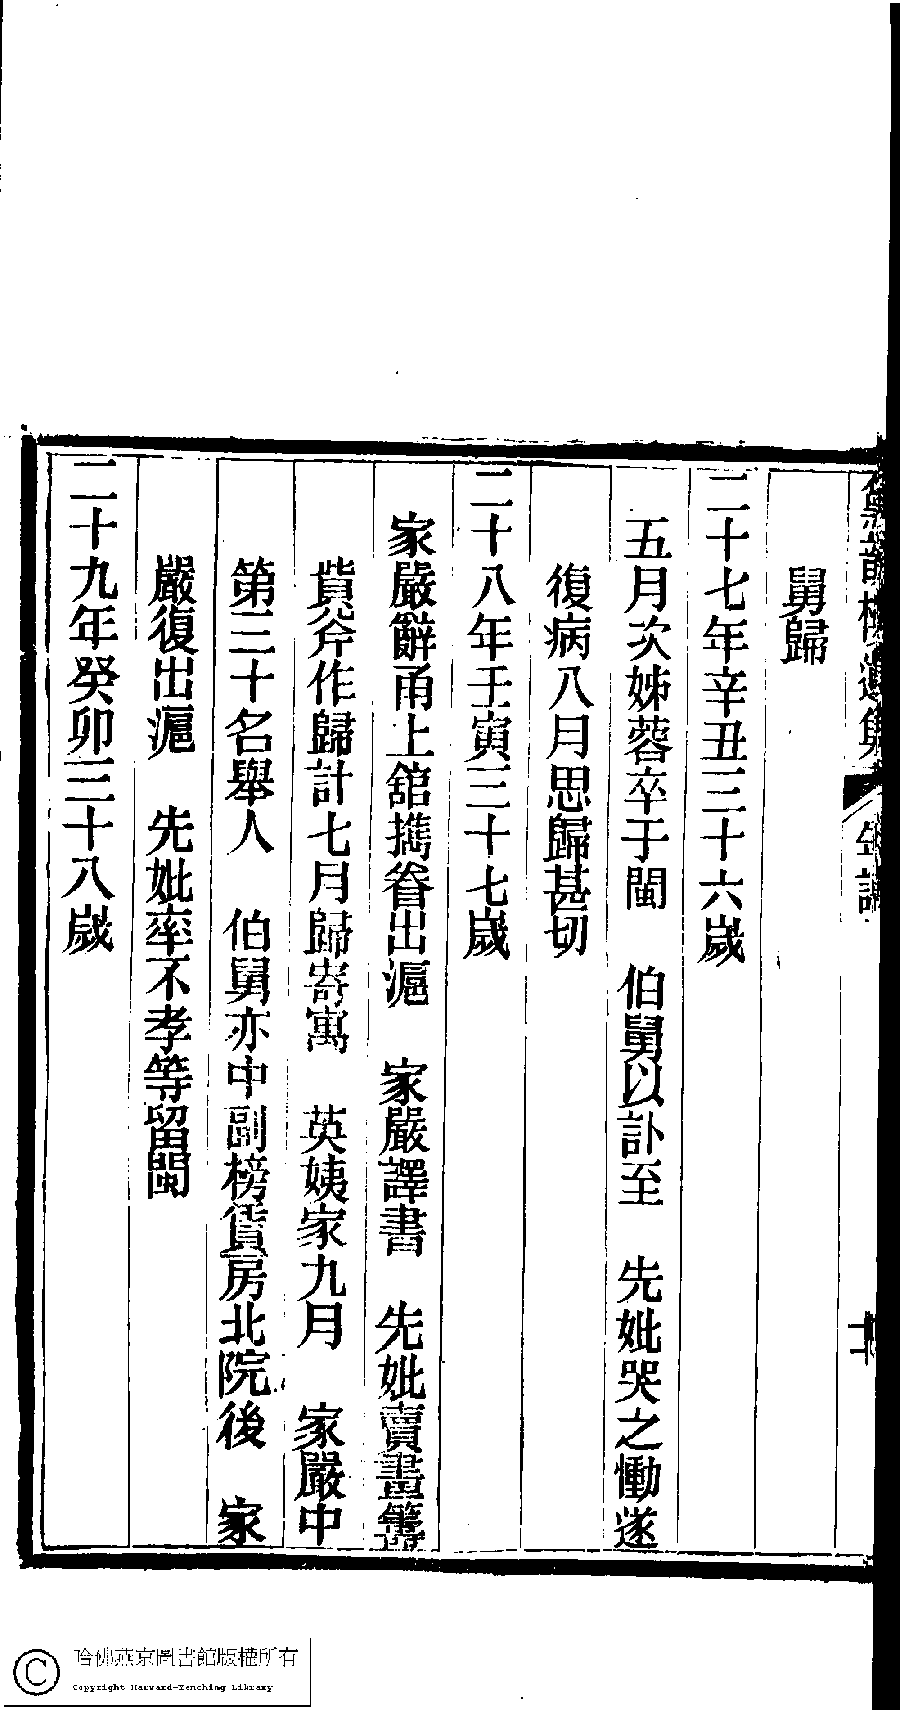 遺集
年譜
舅歸
二十七年辛丑三十六歲
五月次姊蓉卒于閩　伯舅以訃至　先妣哭之慟遂
復病八月思歸甚切
二十八年壬寅三十七歲
家嚴辭甬上舘攜眷出滬　家嚴譯書　先妣賣畫籌
貲斧作歸計七月歸寄寓　英姨家九月　家嚴中
第三十名舉人　伯舅亦中副榜賃房北院後　家
嚴復出滬　先妣率不孝等留閩
二十九年癸卯三十八歲
哈佛燕京圖書館版權所有
Copyright Harvard-Yenching Library